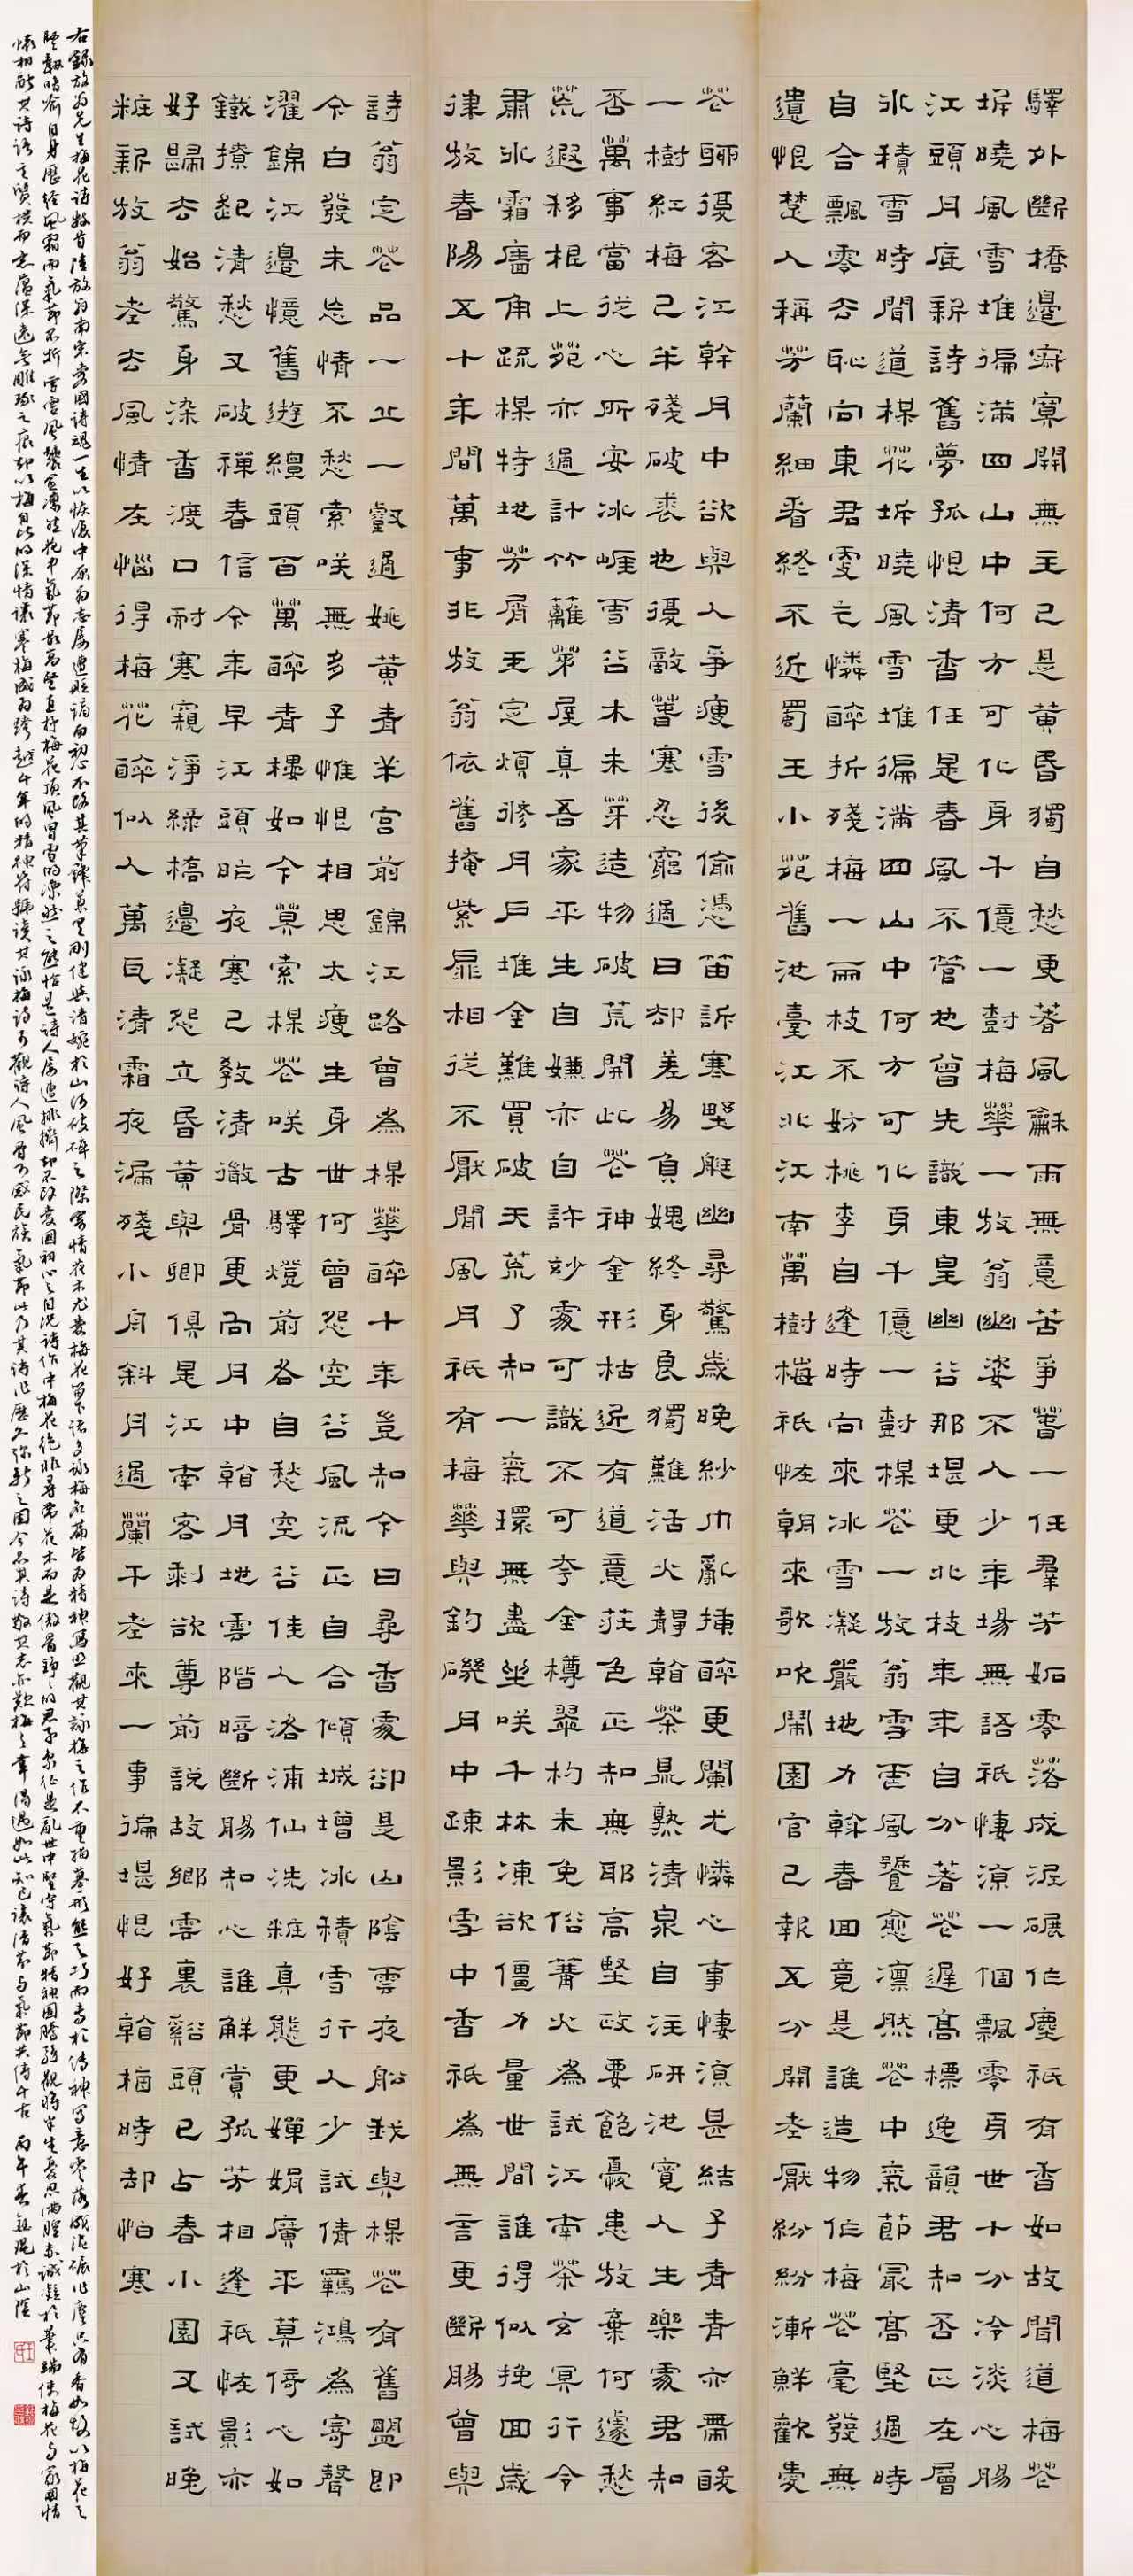 驛外斷橋邊寂寞開無主已是黃昏獨自愁更著風龢雨無意苦爭萅一任羣芳妬零落成泥碾作塵祇有香如故聞道梅花
坼曉風雪堆徧滿四山中何方可化身千億一對梅華一放翁幽姿不入少年場無語祇悽涼一個飄零身世十分冷淡心腸
江頭月底新詩舊夢孤恨清香任是春風不管也曾先識東皇幽谷那堪更北枝年年自分著花遲高標逸韻君知否正在層
冰積雪時聞道楳花坼曉風雪堆徧滿四山中何方可化身千億一對楳花一放翁雪虐風饕愈凜然花中氣節最高堅過時
自合飄零去恥向東君更乞憐醉折殘梅一兩枝不妨桃李自逢時向來冰雪凝嚴地力斡春回竟是誰造物作梅花毫發無
遺恨楚人稱芳蘭細看終不近蜀王小苑舊池臺江北江南萬樹梅祇怪朝來歌吹鬧園官已報五分開老厭紛紛漸鮮歡愛
花聊復客江幹月中欲與人爭瘦雪後偷憑笛訴寒野艇幽尋驚歲晚紗巾亂插醉更闌尤憐心事悽涼甚結子青青亦帶酸
一樹紅梅已半殘破裘也復敵萅寒忍窮過日卻差易負媿終身良獨難活火靜看茶鼎熟清泉自注研池寬人生樂處君知
否萬事當從心所安冰崖雪谷木未芽造物破荒開此花神全形枯近有道意莊色正知無邪高堅政要飽憂患放棄何遽愁
荒遐移根上苑亦過計竹籬茅屋真吾家平生自嫌亦自許妙處可識不可夸金樽翠杓未免俗篝火為試江南茶玄冥行令
肅冰霜牆角疏楳特地芳屑玉定煩修月戶堆金難買破天荒了知一氣環無盡坐咲千林凍欲僵力量世間誰得似挽回歲
律放春陽五十年間萬事非放翁依舊掩柴扉相從不厭閒風月祇有梅華與釣磯月中疎影雪中香祇為無言更斷腸曾與
詩翁定花品一丘一壑過姚黃青羊宮前錦江路曾為楳華醉十年豈知今日尋香處卻是山陰雪夜船我與楳花有舊盟即
今白發未忘情不愁索咲無多子惟恨相思太瘦生身世何曾怨空谷風流正自合傾城增冰積雪行人少試倩羈鴻為寄聲
濯錦江邊憶舊遊纏頭百萬醉青樓如今莫索楳花咲古驛燈前各自愁空谷佳人洛浦仙洗粧真態更嬋娟廣平莫倚心如
鐵撩起清愁又破禪春信今年早江頭昨夜寒已教清徹骨更向月中看月地雲階暗斷腸知心誰解賞孤芳相逢祇怪影亦
好歸去始驚身染香渡口耐寒窺淨綠橋邊凝怨立昏黃與卿俱是江南客剩欲尊前說故鄉雲裏谿頭已占春小園又試晚
粧新放翁老去風情在惱得梅花醉似人萬瓦清霜夜漏殘小舟斜月過蘭干老來一事徧堪恨好看梅時卻怕寒
右錄放翁先生梅花詩數首陸放翁南宋愛國詩魂一生以恢復中原為志屢遭貶謫而初心不改其筆鋒兼具剛健與清婉於山河破碎之際寄情花木尤愛梅花筆下諸多詠梅名篇皆為精神寫照觀其詠梅之作不重描摹形態之巧而專於傳神寫意零落成泥碾作塵只有香如故以梅花之
堅韌喻自身歷經風霜而氣節不折雪虐風饕愈凜然花中氣節最高堅直抒梅花頂風冒雪的凜然之態恰是詩人屢遭排擠卻不改愛國初心之自況詩作中梅花絕非尋常花木而是傲骨錚錚的君子象征是亂世中堅守氣節將半生憂思滿腔赤誠凝於筆端使梅花與家國情
懷相融其詩語言質樸而意蘊深遠無雕琢之痕卻以梅自比的深情讓寒梅成為跨越千年的精神符號讀其詠梅詩可觀詩人風骨可感民族氣節此乃其詩作歷久彌新之因今品其詩敬其志亦歎梅之幸得遇如此知己讓清芬與氣節共傳千古丙午春於山陰